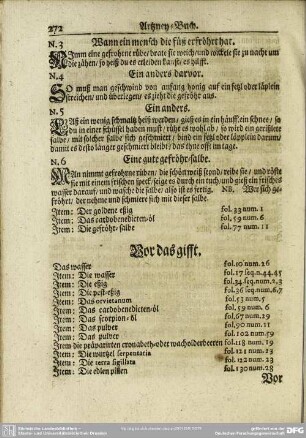 272 Artzney-Buch.
N. 3 Wann ein mensch die füß erfröhrt hat.
NImm eine gefrohrne rübe/ brate sie weich/ und wickle sie zu nacht um
die zähen/ so heiß du es erleiden kanst/ es hilfft.
N. 4 Ein anders darvor.
SO muß man geschwind von anfang honig auf ein fetzl oder läplein
streichen/ und überlegen/ es zieht die gefröhr aus.
N. 5 Ein anders.
LAß ein wenig schmaltz heiß werden/ gieß es in ein häufflein schnee/
du in einer schüssel haben must/ rühr es wohl ab/ so wird ein
salbe/ mit solcher salbe dich geschmiert/ bind ein fetzlein oder daum/
damit es desto länger geschmiert bleibt/ das thue offt/ es hilfft.
N. 6 Eine gute gefröhr-salbe.
MAn nimmt gefrohrne rüben/ die schön weiß seynd/ reibe sie/ und röste
sie mit einem frischen speck/ seige es durch ein tuch/ und gieß ein frisches
wasser darauf/ und wasche die salbe/ also ist es fertig. NB. Wer sich ge-
fröhret/ der nehme und schmiere sich mit dieser salbe.
Item: Der goldene eßig fol. 33 num. 1
Item: Das cardobenedicten-öl fol. 59 num. 6
Item: Die gefröhr-salbe fol. 77 num. 11
Vor das gifft.
Das wasser fol. 10 num. 16
Item: Die wasser fol. 17 seq. n. 44. 45
Item: Die eßig fol. 34 seq. num. 2. 3
Item: Die pest-eßig fol. 36 seq. num. 6. 7
Item: Das orvietanum fol. 53 num. 5
Item: Das cardobenedicten-öl fol. 59 num. 6
Item: Das scorpion-öl fol. 67 num. 29
Item: Das pulver fol. 90 num. 11
Item: Das pulver fol. 91 num. 13
Item: die präparirten cronabeth-oder wacholderbeeren fol. 118 num. 19
Item: Die wurtzel serpentaria fol. 121 num. 13
Item: Die terra sigillata fol. 122 num. 23
Item: Die edlen pisten fol. 130 num. 28
Vor